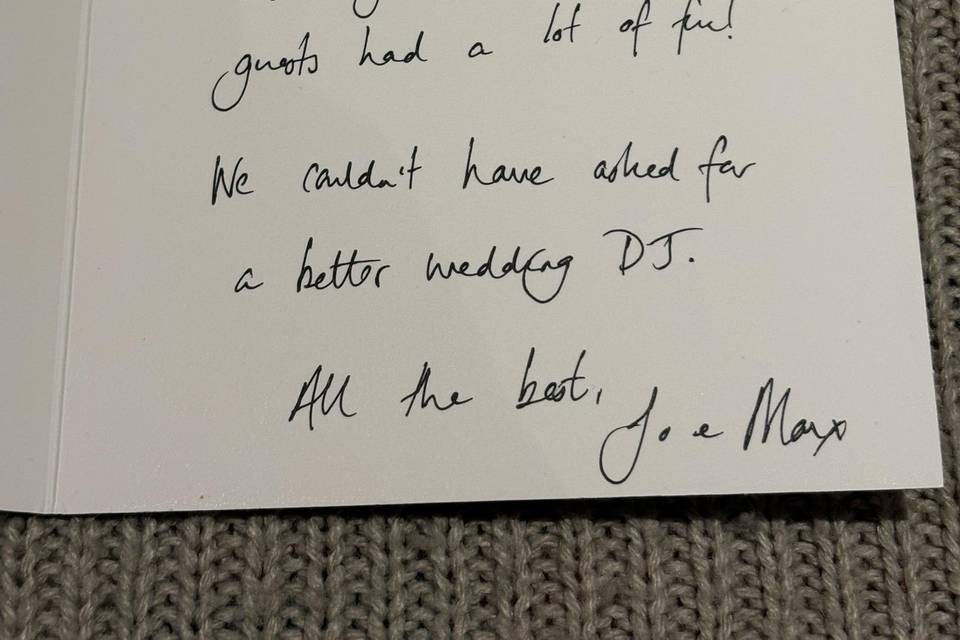 guests had a lot of fun!
We couldn't have asked for
a better wedding DJ.
All the best,
Joe Marx